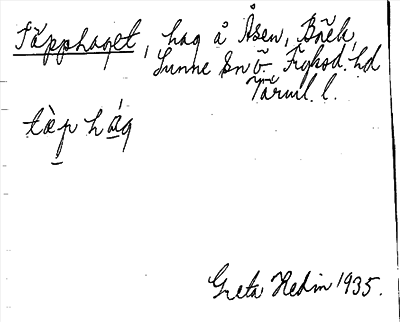 Täpphaget, hag å Åsen, Bäck,
Sunne sn ö. Fryksd. hd
Värml. l.
tæ̀p hág
Greta Hedin 1935.